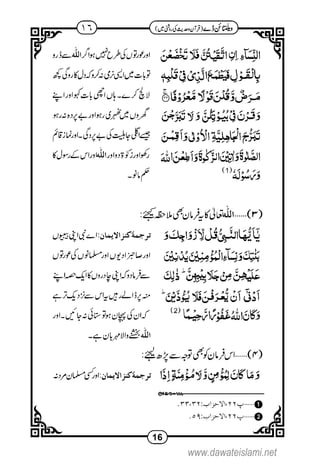 ویلنٹائن ڈے (قرآن وحدیث کی روشنی میں)
١٦
النِّسَآءِ اِنِ اتَّقَیْتُنَّ فَلَا تَخْضَعْنَ
بِالْقَوْلِ فَیَطْمَعَ الَّذِیْ فِیْ قَلْبِهٖ
مَرَضٌ وَّ قُلْنَ قَوْلًا مَّعْرُوْفًا
وَ قَرْنَ فِیْ بُیُوْتِكُنَّ وَ لَا تَبَرَّجْنَ
تَبَرُّجَ الْجَاهِلِیَّةِ الْاُوْلٰى وَ اَقِمْنَ
الصَّلٰوةَ وَ اٰتِیْنَ الزَّكٰوةَ وَ اَطِعْنَ اللّٰهَ
وَ رَسُوْلَهٗ (1)
اور عورتوں کی طرح نہیں ہو اگر اللہ سے ڈرو
تو بات میں ایسی نرمی نہ کرو کہ دل کا روگی کچھ
لالچ کرے۔ ہاں اچھی بات کہو اور اپنے
گھروں میں ٹھہری رہو اور بے پردہ نہ رہو
جیسے اگلی جاہلیت کی بے پردگی اور نماز قائم
رکھو اور زکوٰۃ دو اور اللہ اور اس کے رسول کا
حکم مانو۔
(٣)......اللہ تعالیٰ کا یہ فرمان بھی ملاحظہ کیجئے:
یٰۤاَیُّهَا النَّبِیُّ قُلْ لِّاَزْوَاجِكَ وَ
بَنٰتِكَ وَ نِسَآءِ الْمُؤْمِنِیْنَ یُدْنِیْنَ
عَلَیْهِنَّ مِنْ جَلَابِیْبِهِنَّ ذٰلِكَ
اَدْنٰۤى اَنْ یُّعْرَفْنَ فَلَا یُؤْذَیْنَ
وَ كَانَ اللّٰهُ غَفُوْرًا رَّحِیْمًا (2)
ترجمۂ کنز الایمان: اے نبی اپنی بیبیوں
اور صاحبزادیوں اور مسلمانوں کی عورتوں
سے فرما دو کہ اپنی چادروں کا ایک حصہ اپنے
منہ پر ڈالے رہیں یہ اس سے نزدیک تر ہے
کہ ان کی پہچان ہو تو ستائی نہ جائیں۔ اور
اللہ بخشنے والا مہربان ہے۔
(٤)......اس فرمان کو بھی توجہ سے پڑھ لیجئے:
وَ مَا كَانَ لِمُؤْمِنٍ وَّ لَا مُؤْمِنَةٍ اِذَا
ترجمۂ کنز الایمان: اور کسی مسلمان مرد نہ
1 ......پ٢٢، الاحزاب: ٣٢، ٣٣.
2 ......پ٢٢، الاحزاب: ٥٩.
16
www.dawateislami.net